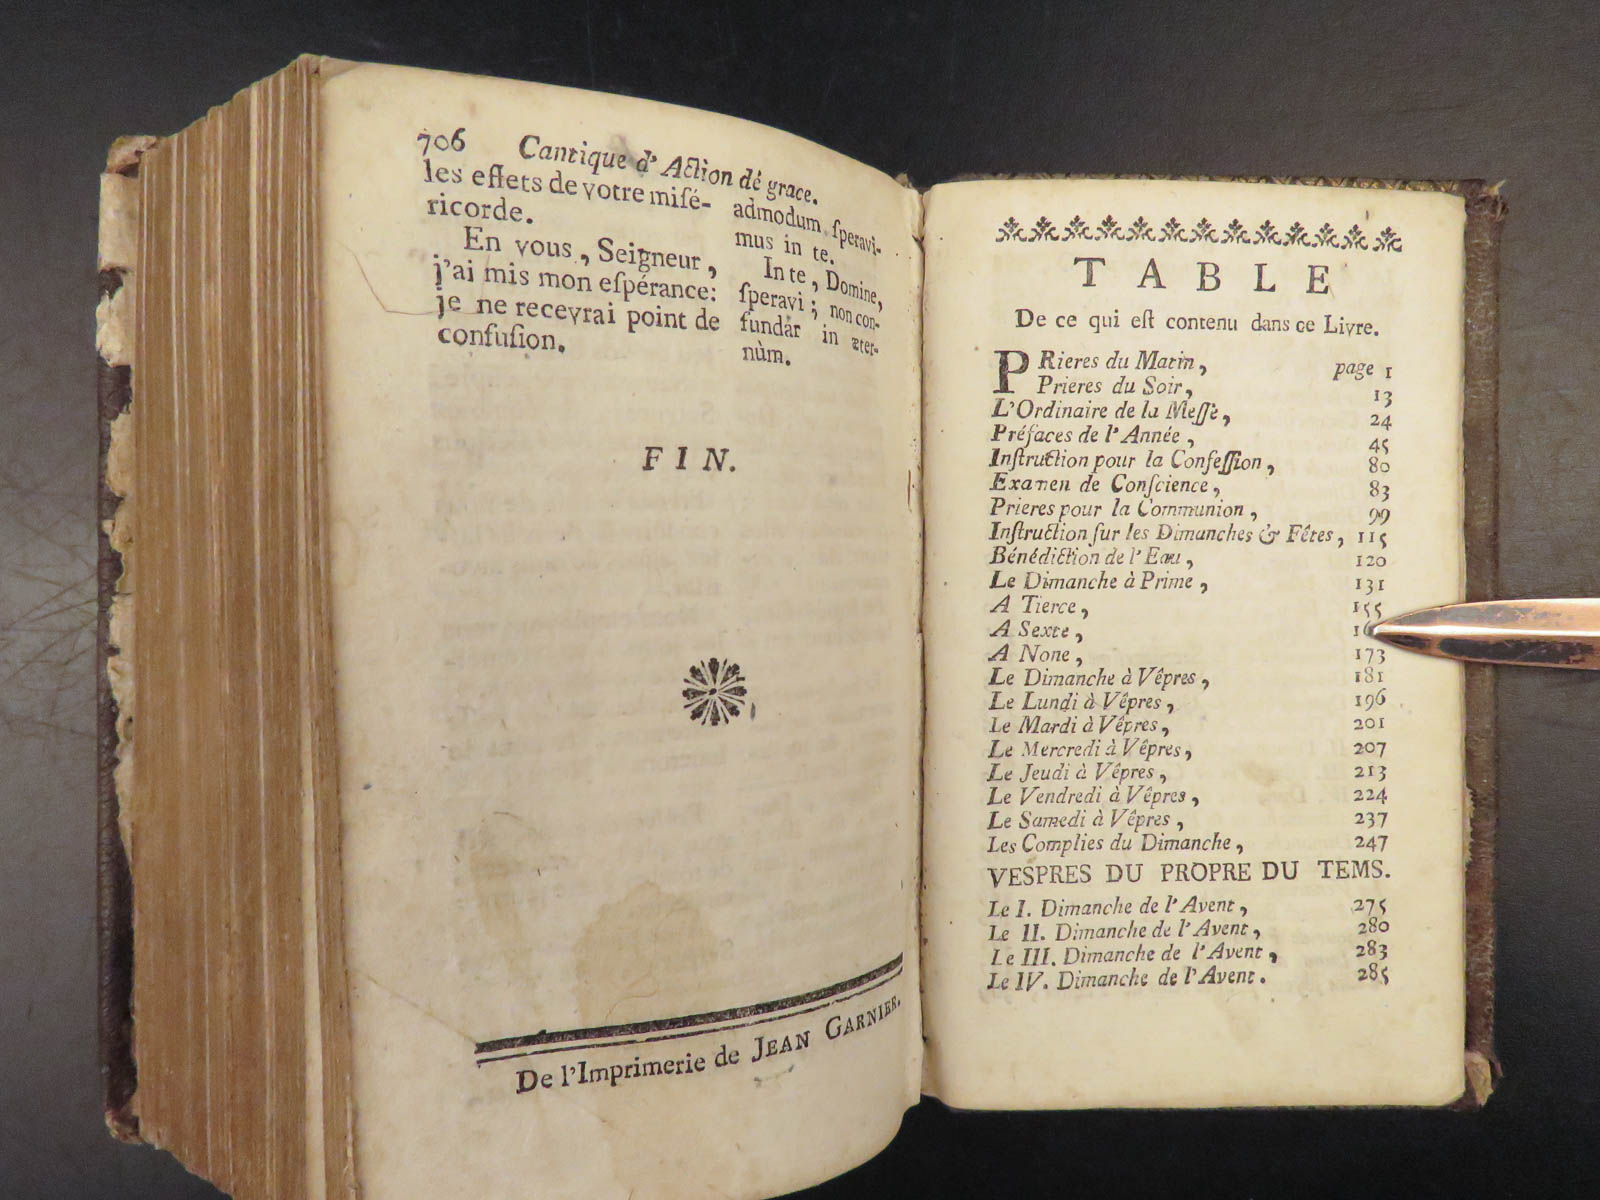 706 Cantique d'Action de grace.
les effets de votre miſé-
ricorde.
En vous, Seigneur,
j'ai mis mon eſpérance:
je ne recevrai point de
confuſion.
admodum ſperavi-
mus in te.
In te, Domine,
ſperavi; non con-
fundar in æter-
nùm.
FIN.
De l'Imprimerie de JEAN GARNIER.
TABLE
De ce qui eſt contenu dans ce Livre.
PRieres du Matin, page 1
Prieres du Soir, 13
L'Ordinaire de la Meſſe, 24
Préfaces de l'Année, 45
Inſtruction pour la Confeſſion, 80
Examen de Conſcience, 83
Prieres pour la Communion, 99
Inſtruction ſur les Dimanches & Fêtes, 115
Bénédiction de l'Eau, 120
Le Dimanche à Prime, 131
A Tierce, 155
A Sexte,
A None, 173
Le Dimanche à Vêpres, 181
Le Lundi à Vêpres, 196
Le Mardi à Vêpres, 201
Le Mercredi à Vêpres, 207
Le Jeudi à Vêpres, 213
Le Vendredi à Vêpres, 224
Le Samedi à Vêpres, 237
Les Complies du Dimanche, 247
VESPRES DU PROPRE DU TEMS.
Le I. Dimanche de l'Avent, 275
Le II. Dimanche de l'Avent, 280
Le III. Dimanche de l'Avent, 283
Le IV. Dimanche de l'Avent. 285